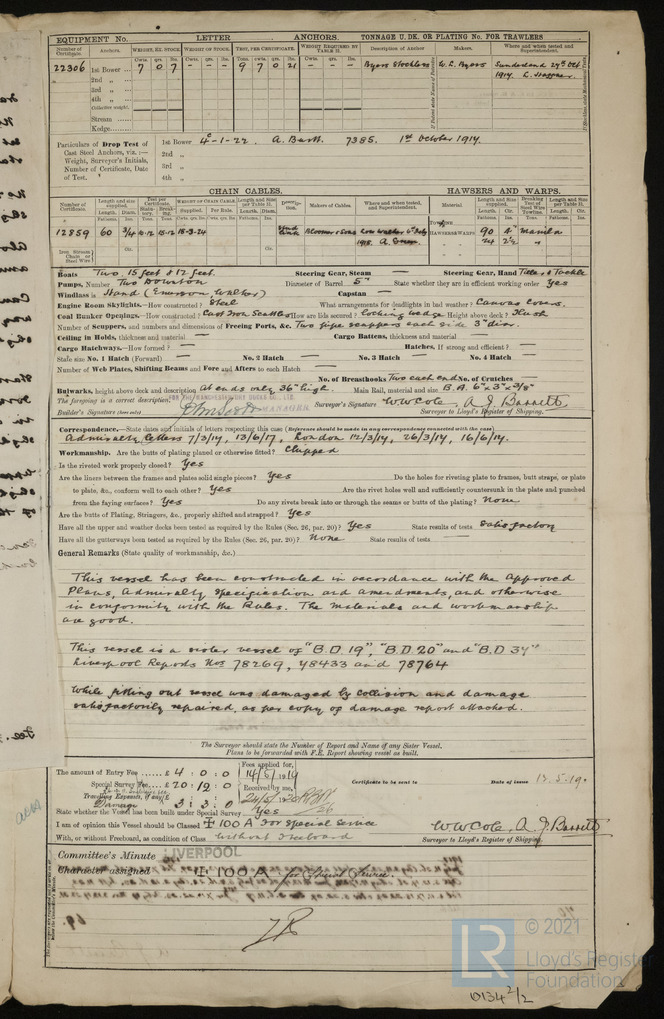 EQUIPMENT No. LETTER ANCHORS. TONNAGE U. DK. OR PLATING No. FOR TRAWLERS
Number of Certificate. Anchors. WEIGHT, EX. STOCK. WEIGHT OF STOCK. TEST, PER CERTIFICATE. WEIGHT REQUIRED BY TABLE 31. Description of Anchor Makers. Where and when tested and Superintendent.
22306 1st Bower 7 0 7 - - - 9 7 0 21 - - - Byers Stockless W. L. Byers Sunderland 27th Oct
2nd „ 1917.
3rd „
4th „
Collective weight.
Stream
Kedge
Particulars of Drop Test of Cast Steel Anchors, viz.:— Weight, Surveyor's Initials, Number of Certificate, Date of Test.
1st Bower 4c-1-22. 7385. 1st October 1917.
2nd „
3rd „
4th „
CHAIN CABLES. HAWSERS AND WARPS.
Number of Certificate. Length and size supplied. Test per Certificate. WEIGHT OF CHAIN CABLE. Length and size per Table 31. Description. Makers of Cables. Where and when tested, and Superintendent. Material Length and Size supplied. Breaking Test of Steel Wire Towline. Length and size per Table 31.
12859 60 3/4 Stud Link
1918.
TOWLINE
HAWSERS & WARPS 90 4" Manila
„ 2½ „
Iron Stream Chain or Steel Wire
Boats Two, 15 feet & 12 feet. Steering Gear, Steam — Steering Gear, Hand Tiller & Tackle
Pumps, Number Two Downton Diameter of Barrel 5" State whether they are in efficient working order Yes
Windlass is Hand (Emerson, Walker) Capstan —
Engine Room Skylights.—How constructed? Steel What arrangements for deadlights in bad weather? Canvas covers.
Coal Bunker Openings.—How constructed? Cast Iron Scuttles How are lids secured? Locking wedge Height above deck? Flush
Number of Scuppers, and numbers and dimensions of Freeing Ports, &c. Two pipe scuppers each side 3" diar.
Ceiling in Holds, thickness and material — Cargo Battens, thickness and material —
Cargo Hatchways.—How formed? — Hatches, If strong and efficient? —
State size No. 1 Hatch (Forward) — No. 2 Hatch — No. 3 Hatch — No. 4 Hatch —
Number of Web Plates, Shifting Beams and Fore and Afters to each Hatch —
No. of Breasthooks Two each end No. of Crutches
Bulwarks, height above deck and description At ends only 36" high. Main Rail, material and size B.A. 6" x 3" x 3/8"
The foregoing is a correct description,
Builder's Signature (here only) MANAGER Surveyor's Signature W W Cole. A J Barrett
Surveyor to Lloyd's Register of Shipping.
Correspondence.—State dates and initials of letters respecting this case (Reference should be made in any correspondence connected with the case)
Admiralty letters 7/3/17, 13/6/17, London 12/3/17, 26/3/17, 16/6/17.
Workmanship. Are the butts of plating planed or otherwise fitted? Clipped
Is the riveted work properly closed? Yes
Are the liners between the frames and plates solid single pieces? Yes Do the holes for riveting plate to frames, butt straps, or plate
to plate, &c., conform well to each other? Yes Are the rivet holes well and sufficiently countersunk in the plate and punched
from the faying surfaces? Yes Do any rivets break into or through the seams or butts of the plating? None
Are the butts of Plating, Stringers, &c., properly shifted and strapped? Yes
Have all the upper and weather decks been tested as required by the Rules (Sec. 26, par. 20)? Yes State results of tests Satisfactory
Have all the gutterways been tested as required by the Rules (Sec. 26, par. 20)? None State results of tests —
General Remarks (State quality of workmanship, &c.)
This vessel has been constructed in accordance with the Approved
Plans, Admiralty Specification and amendments, and otherwise
in conformity with the Rules. The materials and workmanship
are good.
This vessel is a sister vessel of "B.D. 19", "B.D. 20" and "B.D. 34"
Liverpool Reports Nos 78269, 78433 and 78764
While fitting out vessel was damaged by collision and damage
satisfactorily repaired, as per copy of damage report attached.
The Surveyor should state the Number of Report and Name of any Sister Vessel.
Plans to be forwarded with F.E. Report showing vessel as built.
The amount of Entry Fee £ 4 : 0 : 0 Fees applied for, 14/5/1919 Certificate to be sent to Date of issue 13.5.19.
Special Survey Fee £ 20 : 12 : 0 Received by me,
Travelling Expenses, if any £
Damage 3 : 3 : 0
State whether the Vessel has been built under Special Survey Yes
I am of opinion this Vessel should be Classed ✠ 100 A For Special Service
With, or without Freeboard, as condition of Class Without Freeboard
W W Cole. A J Barrett
Surveyor to Lloyd's Register of Shipping.
Committee's Minute LIVERPOOL
Character assigned ✠ 100 A for Special Service
© 2021
LR
Lloyd's Register
Foundation